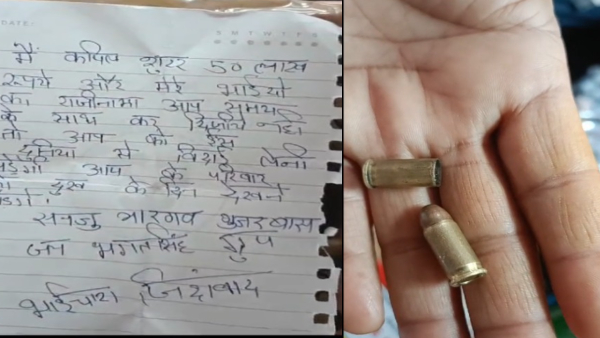 DATE:
S M T W T F S
मैं कपिल शूटर 50 लाख
रूपये और मेरे भाईयो
का राजीनामा आप समय
के साथ कर दिजीये नही
तो आप को इस
दुनिया से विदाई लेनी
पड़ेगी आप के परिवार
को दुख के दिन देखने
पड़ेगे।
सन्जु भारगव गुजरबास
जय भगतसिंह ग्रुप
भाईचारा जिंदाबाद